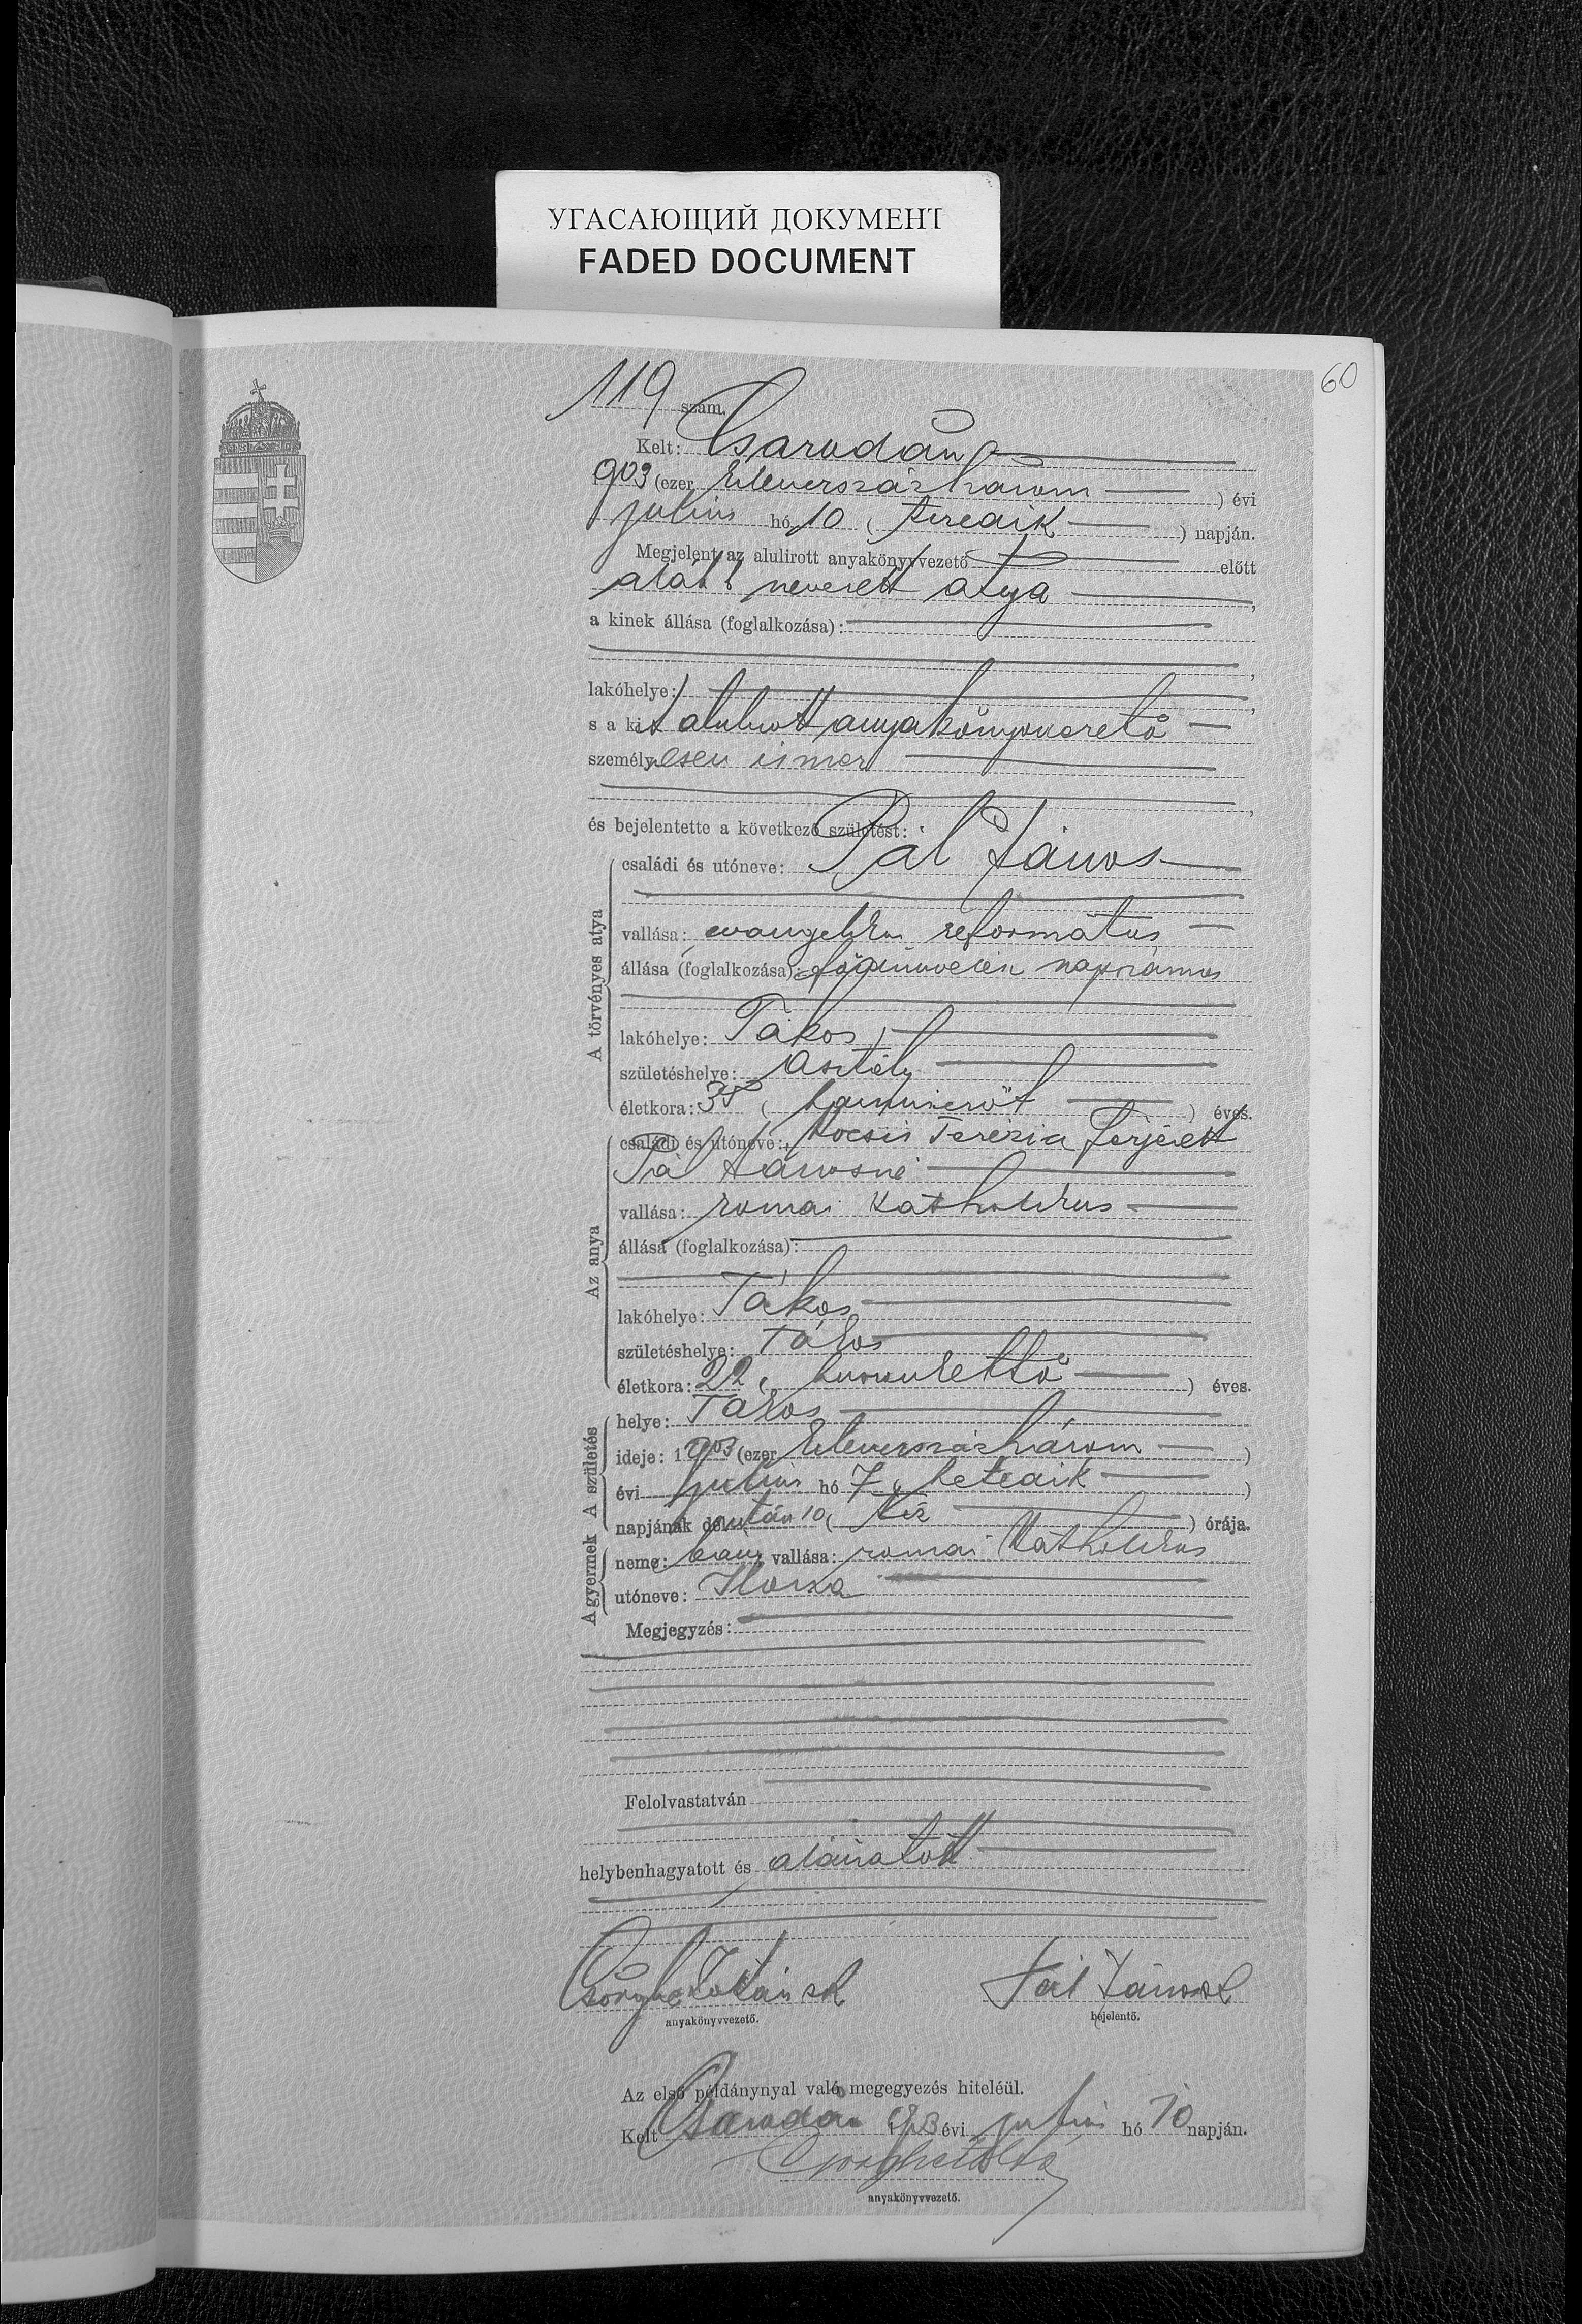 УГАСАЮЩИЙ ДОКУМЕНТ
FADED DOCUMENT
60
119 szám.
Kelt: Csarodán
1903 (ezer kilencszázhárom) évi
julius hó 10 (tizedik) napján.
Megjelent az alulirott anyakönyvvezető előtt
alább nevezett atya,
a kinek állása (foglalkozása):
lakóhelye:
s a kit alulirott anyakönyvvezető
személyesen ismer
és bejelentette a következő születést:
A törvényes atya
családi és utóneve: Pál János
vallása: evangelikus református
állása (foglalkozása): földmivelési napszámos
lakóhelye: Tákos
születéshelye: Asztély
életkora: 35 (harmincöt) éves.
Az anya
családi és utóneve: Kocsis Terézia férjezett
Pál Jánosné
vallása: romai katholikus
állása (foglalkozása):
lakóhelye: Tákos
születéshelye: Tákos
életkora: 22 (huszonkettő) éves.
A gyermek A születés
helye: Tákos
ideje: 1903 (ezer kilencszázhárom)
évi julius hó 7 (hetedik)
napjának délután 10 (tíz) órája.
neme: leány vallása: romai katholikus
utóneve: Ilona
Megjegyzés:
Felolvastatván
helybenhagyatott és aláiratott
Zoltán sk Pál János sk
anyakönyvvezető. bejelentő.
Az első példánynyal való megegyezés hiteléül.
Kelt Csarodán 1903 évi julius hó 10 napján.
anyakönyvvezető.